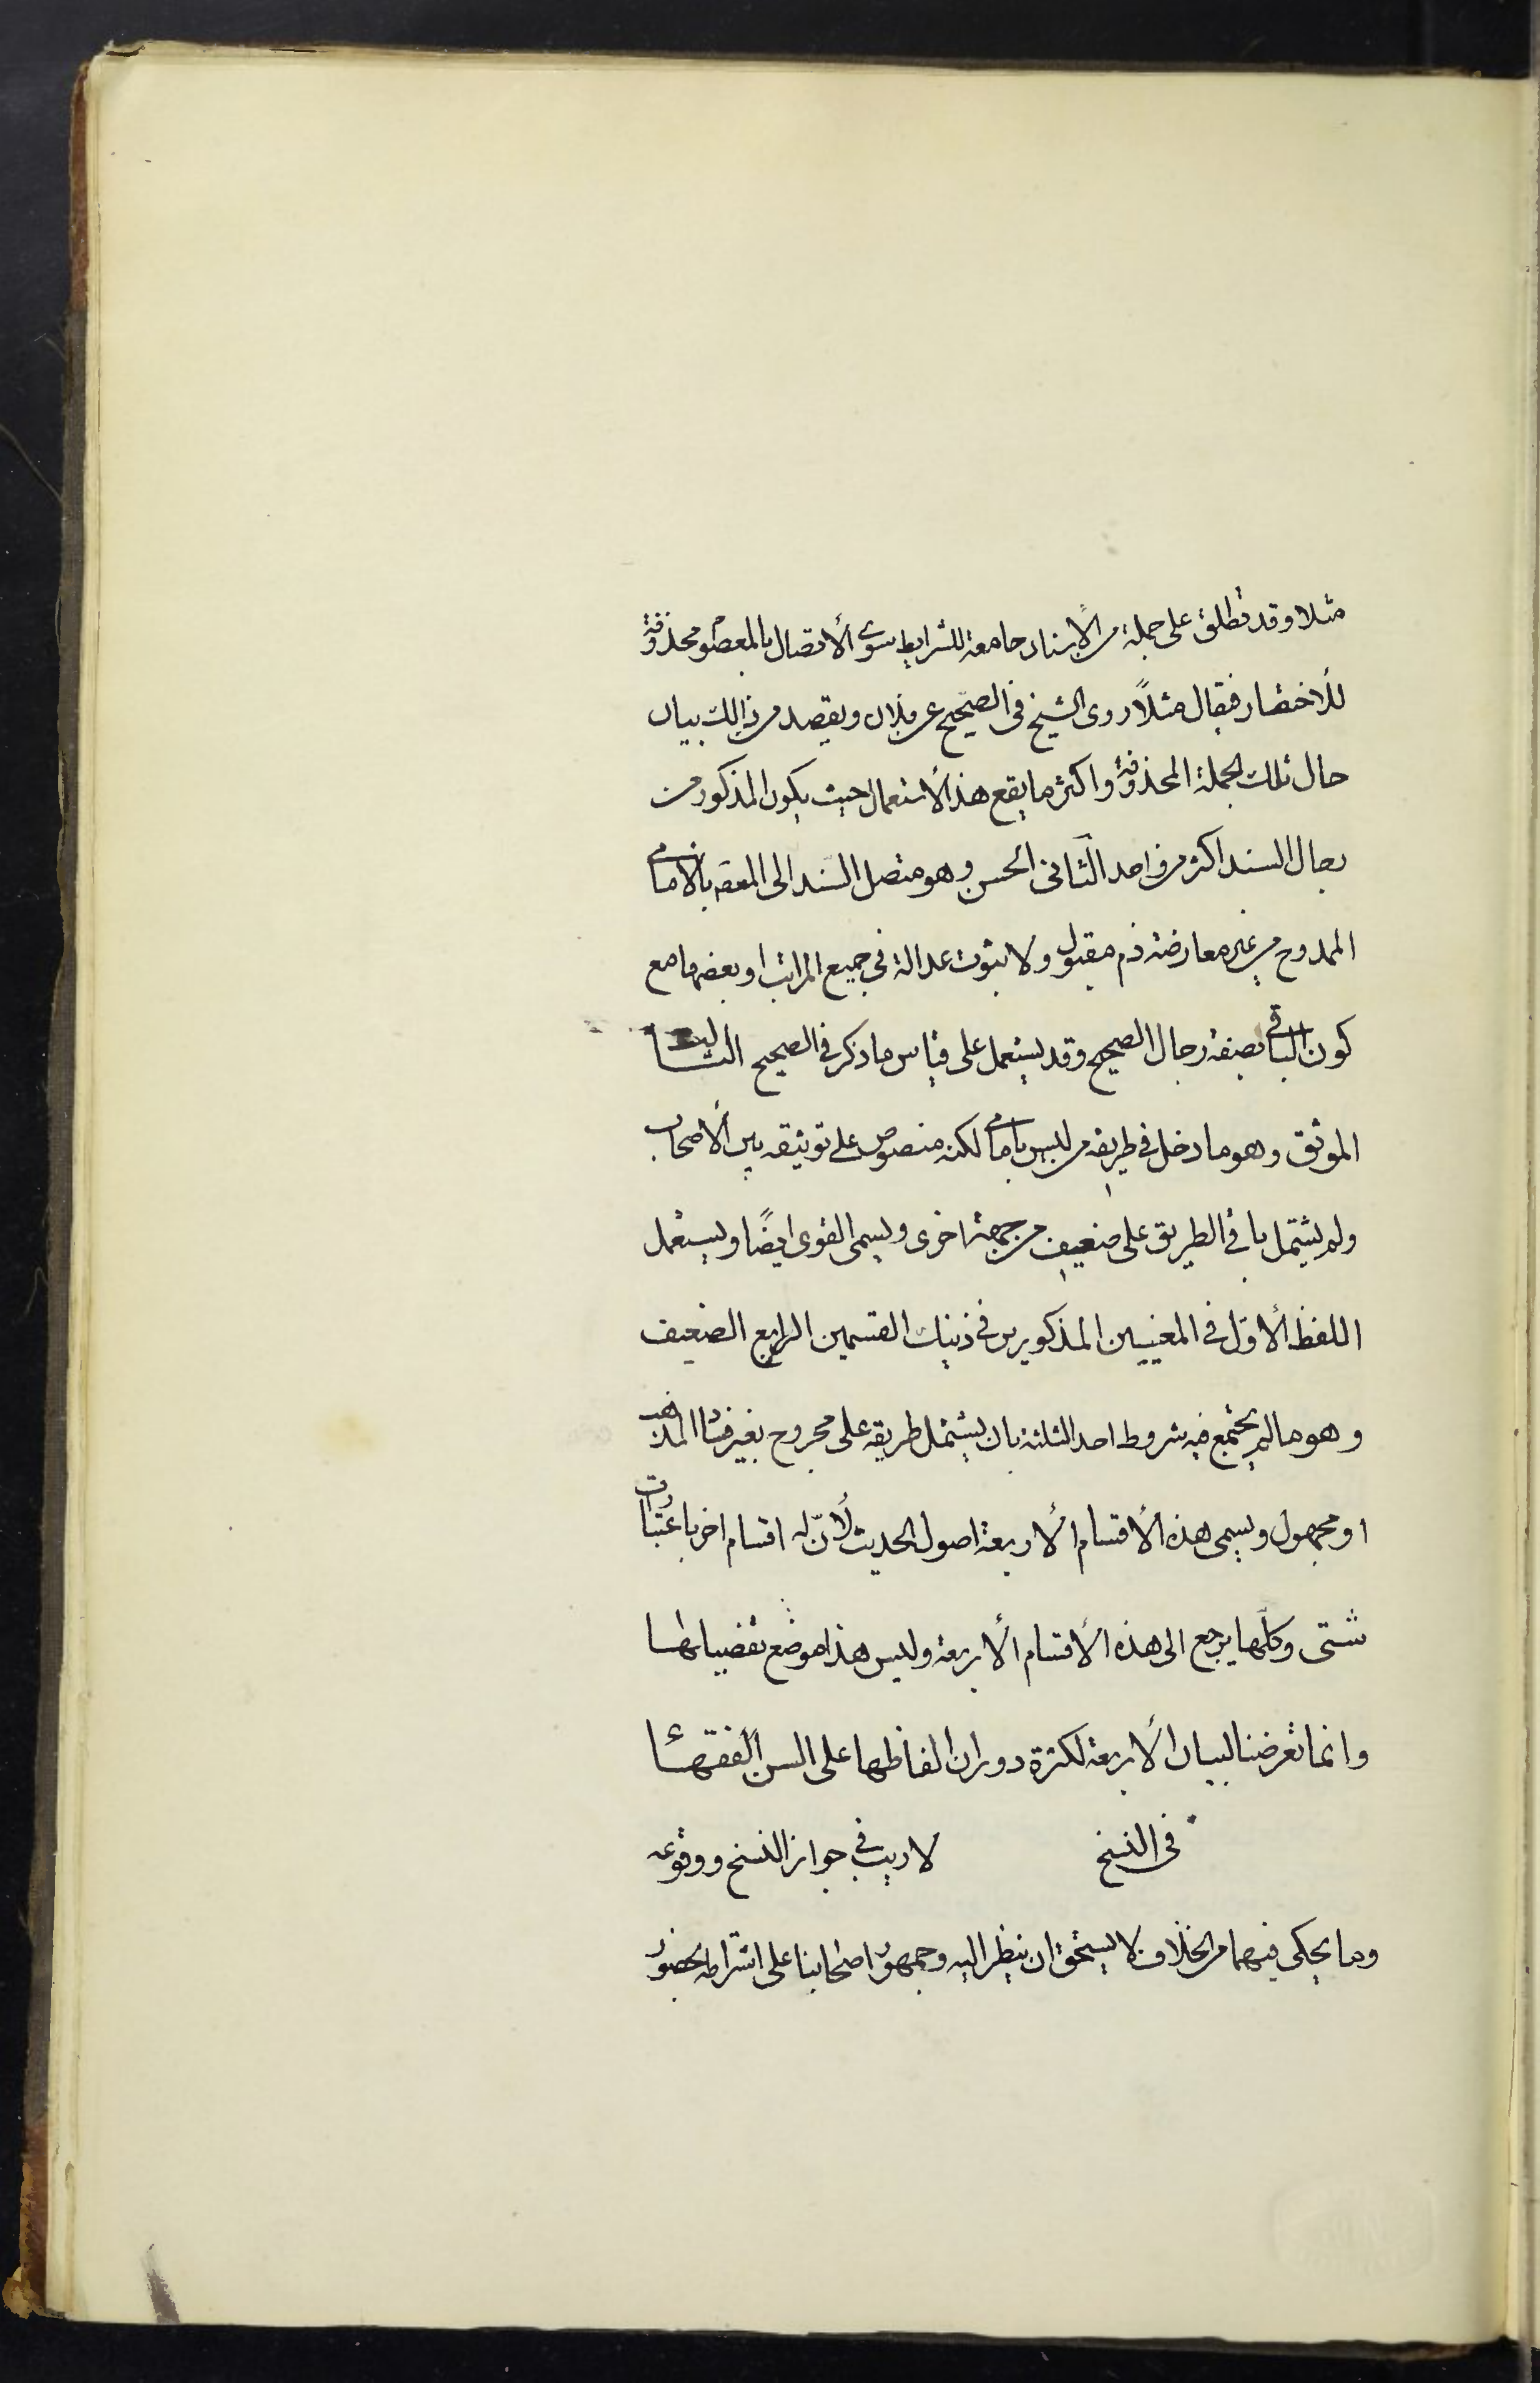 مثلا وقد تطلق على جملة من الأسناد جامعة للشرايط سوى الأتصال بالمعصوم محذوفة
للأختصار فيقال مثلاً روى الشيخ في الصحيح عن فلان ويقصد من ذالك بيان
حال تلك الجملة المحذوفة واكثر ما يقع هذا الأستعمال حيث يكون المذكور من
رجال السند اكثر من واحد الثانى الحسن وهو متصل السند الى المعصـ بالامامى
الممدوح من غير معارضة ذم مقبول ولا ثبوت عدالة في جميع المراتب او بعضها مع
كون الباقى بصفة رجال الصحيح وقد يستعمل على قياس ما ذكر في الصحيح الثالث
الموثق وهو ما دخل في طريقه من ليس بامامى لكنه منصوص على توثيقه بين الأصحاب
ولم يشتمل باقى الطريق على ضعيف من جهة اخرى ويسمى القوى ايضًا ويستعمل
اللفظ الأوّل في المعنيين المذكورين في ذينك القسمين الرابع الضعيف
وهو ما لم يجتمع فيه شروط احد الثلثة بان يشتمل طريقه على مجروح بغير فساد المذهب
او مجهول ويسمى هذه الأقسام الأربعة اصول الحديث لأنّ له اقسام اخر باعتبارات
شتى وكلّها يرجع الى هذه الأقسام الأربعة وليس هذا موضع تفصيلها
وانما تعرضنا لبيان الأربعة لكثرة دوران الفاظها على السن الفقهاء
في النسخ لا ريب في جواز النسخ ووقوعه
وما يحكى فيهما من الخلاف لا يستحق ان ينظر اليه وجمهور اصحابنا على اشتراطه بحضور